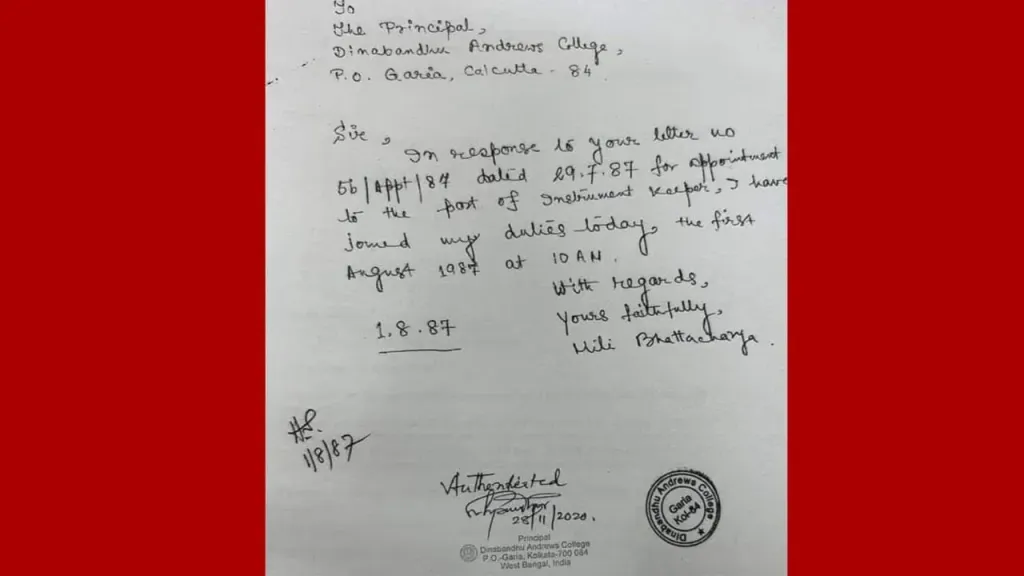 To
The Principal,
Dinabandhu Andrews College,
P.O. Garia, Calcutta - 84.
Sir,
In response to your letter no
56/Appt/87 dated 29.7.87 for appointment
to the post of Instrument Keeper, I have
joined my duties today, the first
August 1987 at 10 AM.
With regards,
Yours faithfully,
Mili Bhattacharya.
1.8.87
1/8/87
Authenticated
28/11/2020.
Principal
Dinabandhu Andrews College
P.O.-Garia, Kolkata-700 084
West Bengal, India
Dinabandhu Andrews College
Garia
Kol-84